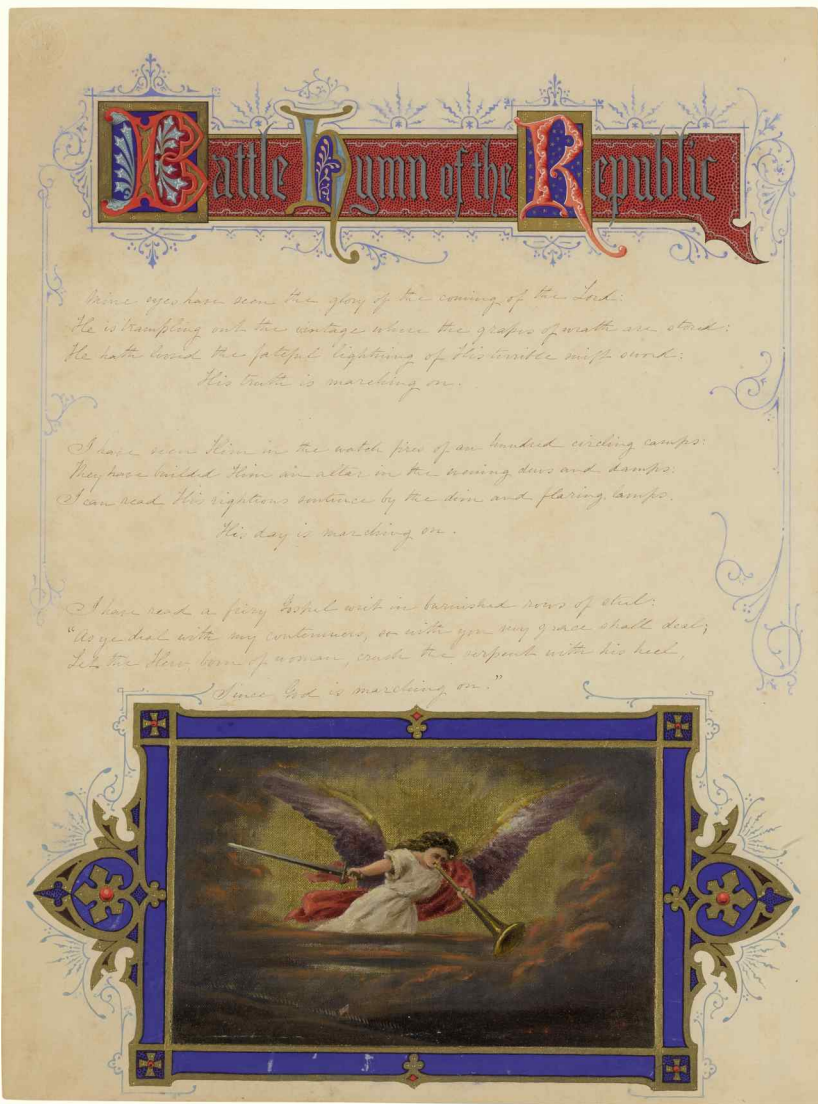 Battle Hymn of the Republic
Mine eyes have seen the glory of the coming of the Lord:
He is trampling out the vintage where the grapes of wrath are stored:
He hath loosed the fateful lightning of His terrible swift sword:
His truth is marching on.
I have seen Him in the watch fires of an hundred circling camps:
They have builded Him an altar in the evening dews and damps:
I can read His righteous sentence by the dim and flaring lamps.
His day is marching on.
I have read a fiery Gospel writ in burnished rows of steel:
"As ye deal with my contemners, so with you my grace shall deal;
Let the Hero born of woman, crush the serpent with his heel,
Since God is marching on."